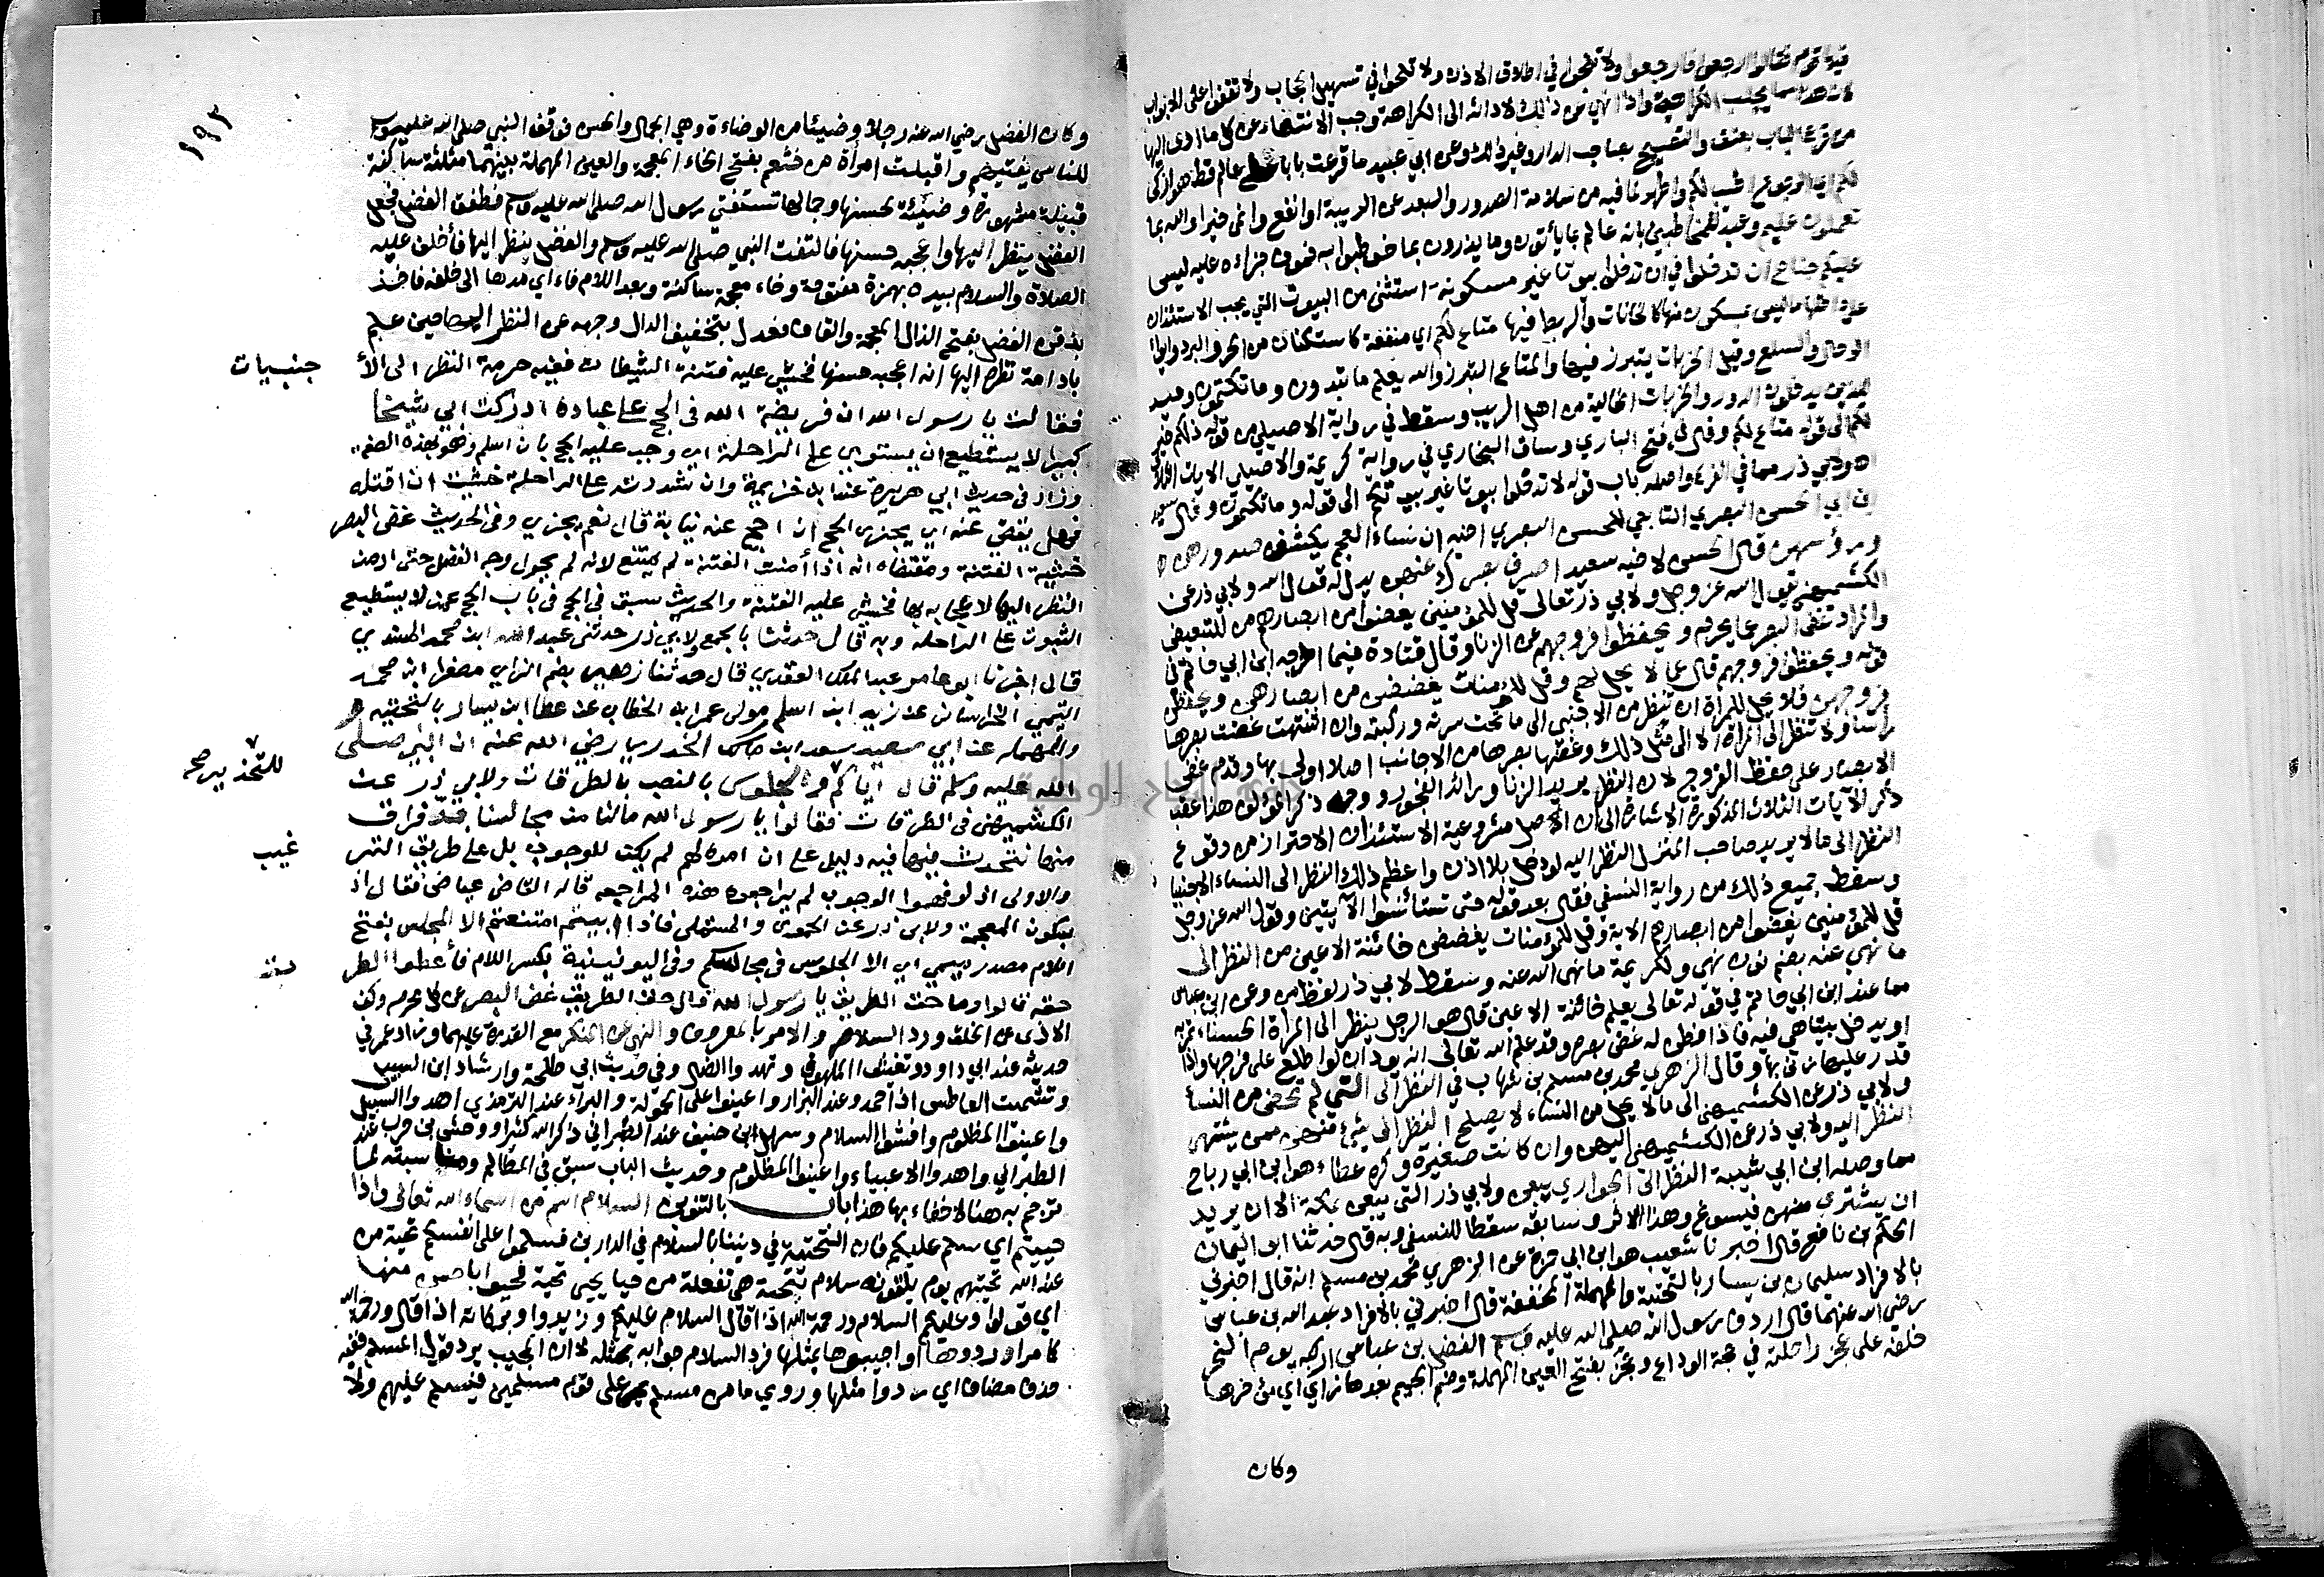 قيه قوم فقالوا ارجعوا فارجعوا ولا تلحوا في اطلاق الاذن ولا تلحوا في تسهيل الحجاب ولا تقفوا على الابواب
لان هذا مما يجلب الكراهة واذا نهي عن ذلك لادائه الى الكراهة وجب الانتهاء عن كل ما ادى اليها
من قرع الباب بعنف والتصييح بصاحب الدار وغير ذلك وعن ابي عبيد ما قرعت بابا على عالم قط هو ازكى
لكم اي الرجوع اطيب لكم واطهر لما فيه من سلامة الصدور والبعد عن الريبة او انفع وانمى خيرا والله بما
تعملون عليم وعيد للمخاطبين بانه عالم بما يأتون وما يذرون بما خوطبوا به فموف جزاءه عليه ليس
عليكم جناح ان تدخلوا في ان تدخلوا بيوتا غير مسكونة استثنى من البيوت التي يجب الاستئذان
على داخلها ما ليس بمسكون منها كالخانات والربط فيها متاع لكم اي منفعة كاستكنان من الحر والبرد وايوا
الرحال والسلع وقيل الخربات يتبرز فيها والمتاع التبرز والله يعلم ما تبدون وما تكتمون وعيد
للذين يدخلون الدور والخربات الخالية من اهل الريب وسقط في رواية الاصيلي من قوله ذلكم خير
لكم الى قوله متاع لكم وقال في فتح الباري وساق البخاري في رواية كريمة والاصيلي الايات الثلاث
ولابي ذر مما في الفرع واصله باب قوله لا تدخلوا بيوتا غير بيوتكم الى قوله وما تكتمون وقال سعيد
ابن ابي الحسن البصري التابعي للحسن البصري اخيه ان نساء العجم يكشفن صدورهن
ورؤسهن قال الحسن لاخيه سعيد اصرف بصرك عنهن بدل له قول الله ولابي ذر عن
الكشميهني يقول الله عز وجل ولابي ذر تعالى قل للمؤمنين يغضوا من ابصارهم من للتبعيض
والمراد غض البصر عما يحرم ويحفظوا فروجهم عن الزنا وقال قتادة فيما اخرجه ابن ابي حاتم في
قوله ويحفظوا فروجهم قال عما لا يحل لهم وقل للمؤمنات يغضضن من ابصارهن ويحفظن
فروجهن فلا يحل للمرأة ان تنظر من الاجنبي الى ما تحت سرته وركبته وان اشتهت غضت بصرها
رأسا ولا تنظر الى المرأة الا الى مثل ذلك وغضها بصرها من الاجانب اصلا اولى بها وقدم غض
الابصار على حفظ الفروج لان النظر بريد الزنا ورائد الفجور ووجه ذكر المؤلف هذا عقب
ذكر الآيات الثلاث المذكورة الاشارة الى ان اصل مشروعية الاستئذان الاحتراز من وقوع
النظر الى ما لا يريد صاحب المنزل النظر اليه لو دخل بلا اذن واعظم ذلك النظر الى النساء الاجنبيات
وسقط جميع ذلك من رواية النسفي فقال بعد قوله حتى تستأنسوا الآيتين وقول الله عز وجل
قل للمؤمنين يغضوا من ابصارهم الاية وقل للمؤمنات يغضضن خائنة الاعين من النظر الى
ما نهي عنه بضم نون نهي ولكريمة ما نهى الله عنه وسقط لابي ذر لفظ من وعن ابن عباس
مما عند ابن ابي حاتم في قوله تعالى يعلم خائنة الاعين قال هو الرجل ينظر الى المرأة الحسناء تمر به
او يدخل بيتا هي فيه فاذا فطن له غض بصره وقد علم الله تعالى انه يود ان لو اطلع على فرجها واذا
قدر عليها زنى بها وقال الزهري محمد بن مسلم بن شهاب في النظر الى التي لم تحض من النساء
ولابي ذر عن الكشميهني الى ما لا يحل من النساء لا يصلح النظر الى شيء منهن ممن يشتهى
النظر اليه ولابي ذر عن الكشميهني اليهن وان كانت صغيرة وكره عطاء هو ابن ابي رباح
مما وصله ابن ابي شيبة النظر الى الجواري يبعن ولابي ذر التي يبعن بمكة الا ان يريد
ان يشتري منهن فيسوغ وهذا الاثر وسابقه سقطا للنسفي وبه قال حدثنا ابو اليمان
الحكم بن نافع قال اخبرنا شعيب هو ابن ابي حمزة عن الزهري محمد بن مسلم انه قال اخبرني
بالافراد سليمان بن يسار بالتحتية والمهملة المخففة قال اخبرني بالافراد عبد الله بن عباس
رضي الله عنهما قال اردف رسول الله صلى الله عليه وسلم الفضل بن عباس اركبه يوم النحر
خلفه على عجز راحلته في حجة الوداع وعجز بفتح العين المهملة وضم الجيم بعدها زاي اي مؤخرها
وكان
١٩٣
وكان الفضل رضي الله عنه رجلا وضيئا من الوضاءة وهي الجمال والحسن فوقف النبي صلى الله عليه وسلم
للناس يفتيهم واقبلت امرأة من خثعم بفتح الخاء المعجمة والعين المهملة بينهما مثلثة ساكنة
قبيلة مشهورة وضيئة لحسنها وجمالها تستفتي رسول الله صلى الله عليه وسلم فطفق الفضل فجعل
الفضل ينظر اليها واعجبه حسنها فالتفت النبي صلى الله عليه وسلم والفضل ينظر اليها فأخلف عليه
الصلاة والسلام بيده بهمزة مفتوحة وخاء معجمة ساكنة وبعد اللام فاء اي مدها الى خلفه فاخذ
بذقن الفضل بفتح الذال المعجمة والقاف فعدل بتخفيف الدال وجهه عن النظر اليها حين علم
بادامة نظره اليها انه اعجبه حسنها فخشي عليه فتنة الشيطان ففيه حرمة النظر الى الأ
جنبيات
فقالت يا رسول الله ان فريضة الله في الحج على عباده ادركت ابي شيخا
كبيرا لا يستطيع ان يستوي على الراحلة اي وجب عليه الحج بان اسلم وهو بهذه الصفة
وزاد في حديث ابي هريرة عند ابن خزيمة وان شددته على الراحلة خشيت ان اقتله
فهل يقضي عنه اي يجزي الحج ان احج عنه نيابة قال نعم يجزي وفي الحديث غض البصر
خشية الفتنة ومقتضاه انه اذا أمنت الفتنة لم يمتنع لانه لم يحول وجه الفضل حتى ادمن
النظر اليها لاعجابه بها فخشي عليه الفتنة والحديث سبق في الحج في باب الحج عمن لا يستطيع
الثبوت على الراحلة وبه قال حدثنا بالجمع ولابي ذر حدثني عبد الله ابن محمد المسندي
قال اخبرنا ابو عامر عبد الملك العقدي قال حدثنا زهير بضم الزاي مصغرا ابن محمد
التيمي الخراساني عن زيد ابن اسلم مولى عمر ابن الخطاب عن عطا ابن يسار بالتحتية
والمهملة عن ابي سعيد سعد ابن مالك الخدري رضي الله عنه ان النبي صلى
الله عليه وسلم قال اياكم والجلوس بالنصب بالطرقات ولابي ذر عن
للتحذير صح
الكشميهني في الطرقات فقالوا يا رسول الله ما لنا من مجالسنا بد فراق
منها نتحدث فيها فيه دليل على ان امره لهم لم يكن للوجوب بل على طريق التر
غيب
والاولى اذ لو فهموا الوجوب لم يراجعوه هذه المراجعة قاله القاضي عياض فقال اذ
بسكون المعجمة ولابي ذر عن الحموي والمستملي فاذا ابيتم امتنعتم الا المجلس بفتح
اللام مصدر ميمي اي الا الجلوس في مجالسكم وفي اليونينية بكسر اللام فأعطوا الطر
يق
حقه قالوا وما حق الطريق يا رسول الله قال حق الطريق غض البصر عن كل محرم وكف
الاذى عن الخلق ورد السلام والامر بالمعروف والنهي عن المنكر مع القدرة عليهما وزاد عمر في
حديثه عند ابي داود وتغيثوا الملهوف وتهدوا الضال وفي حديث ابي طلحة وارشاد ابن السبيل
وتشميت العاطس اذا حمد وعند البزار واعينوا على الحمولة والبراء عند الترمذي اهدوا السبيل
واعينوا المظلوم وافشوا السلام وسهل ابن حنيف عند الطبراني ذكر الله كثيرا ووحشي بن حرب عند
الطبراني واهدوا الاغبياء واعينوا المظلوم وحديث الباب سبق في المظالم ومناسبته لما
ترجم به هنا لا خفاء بها هذا باب بالتنوين السلام اسم من اسماء الله تعالى واذا
حييتم اي سلم عليكم فان التحية في ديننا بالسلام في الدارين فسلموا على انفسكم تحية من
عند الله تحيتهم يوم يلقونه سلام بتحية هي تفعلة من حيا يحيي تحية فحيوا باحسن منها
اي قولوا وعليكم السلام ورحمة الله اذا قال السلام عليكم وزيدوا وبركاته اذا قال ورحمة الله
كما مر او ردوها او اجيبوها بمثلها فرد السلام جوابه بمثله لان المجيب يرد قول المسلم ففيه
حذف مضاف اي ردوا مثلها وروي ما من مسلم يمر على قوم مسلمين فيسلم عليهم ولا